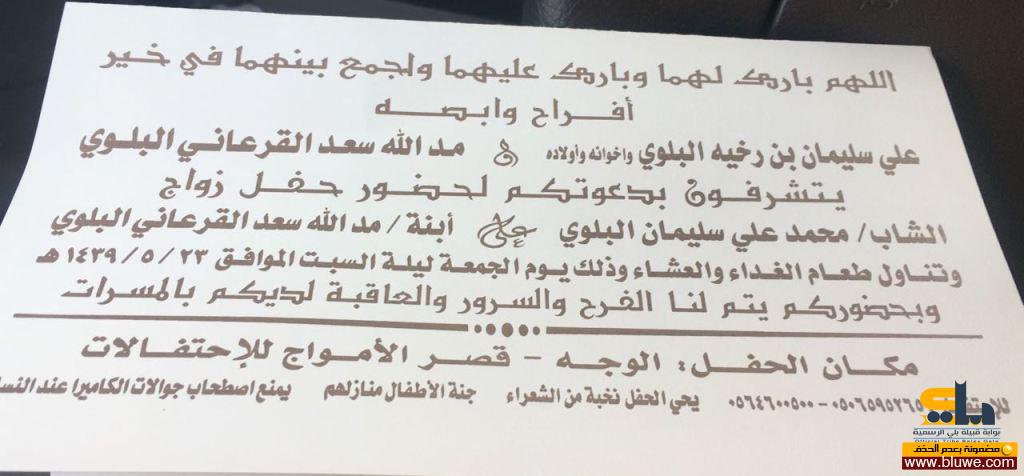 اللهم بارك لهما وبارك عليهما واجمع بينهما في خير
أفراح وابصه
علي سليمان بن رخيه البلوي واخوانه وأولاده و مد الله سعد القرعاني البلوي
يتشرفون بدعوتكم لحضور حفل زواج
الشاب/ محمد علي سليمان البلوي على أبنة / مد الله سعد القرعاني البلوي
وتناول طعام الغداء والعشاء وذلك يوم الجمعة ليلة السبت الموافق ٢٣ / ٥ / ١٤٣٩ هـ
وبحضوركم يتم لنا الفرح والسرور والعاقبة لديكم بالمسرات
مكان الحفل: الوجه - قصر الأمواج للإحتفالات
٠٥٠٦٥٩٥٢٦٥ - ٠٥٦٤٦٠٠٥٠٠ يحي الحفل نخبة من الشعراء جنة الأطفال منازلهم يمنع اصطحاب جوالات الكاميرا عند النسا
بلي
بوابة قبيلة بلي الرسمية
Official Tribe Bales Gate
مضمونة بعدم الحذف
www.bluwe.com